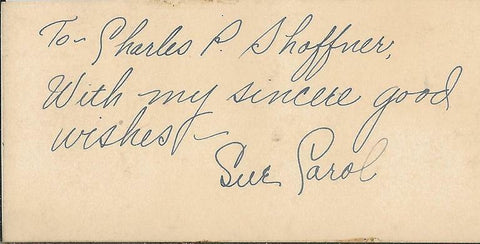 To- Charles P. Shoffner,
With my sincere good
wishes -
Sue Carol